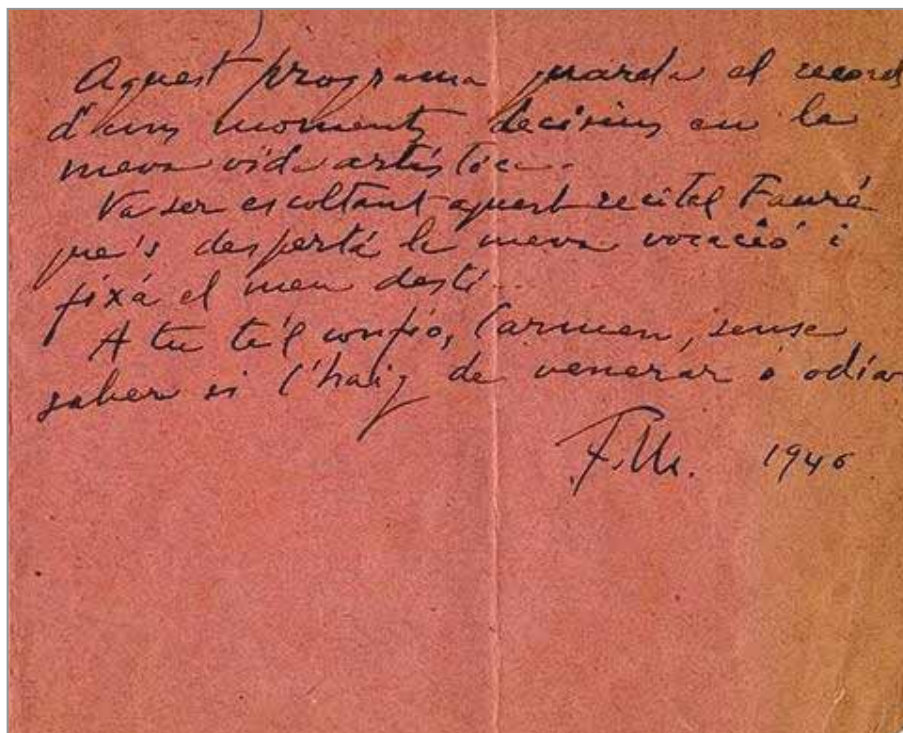 Aquest programa guarda el record
d'uns moments decisius en la
meva vida artística.
Va ser escoltant aquest recital Fauré
que's despertá la meva vocació i
fixá el meu destí...
A tu te'l confio, Carmen, sense
saber si l'haig de venerar o odiar
F.M. 1946